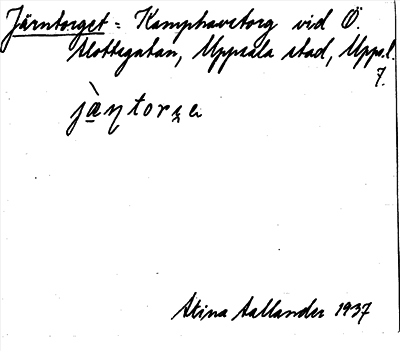 Järntorget = Kamphavetorg vid Ö.
Slottsgatan, Uppsala stad, Uppl.
7.
jàŋtorʒe
Stina Sallander 1937